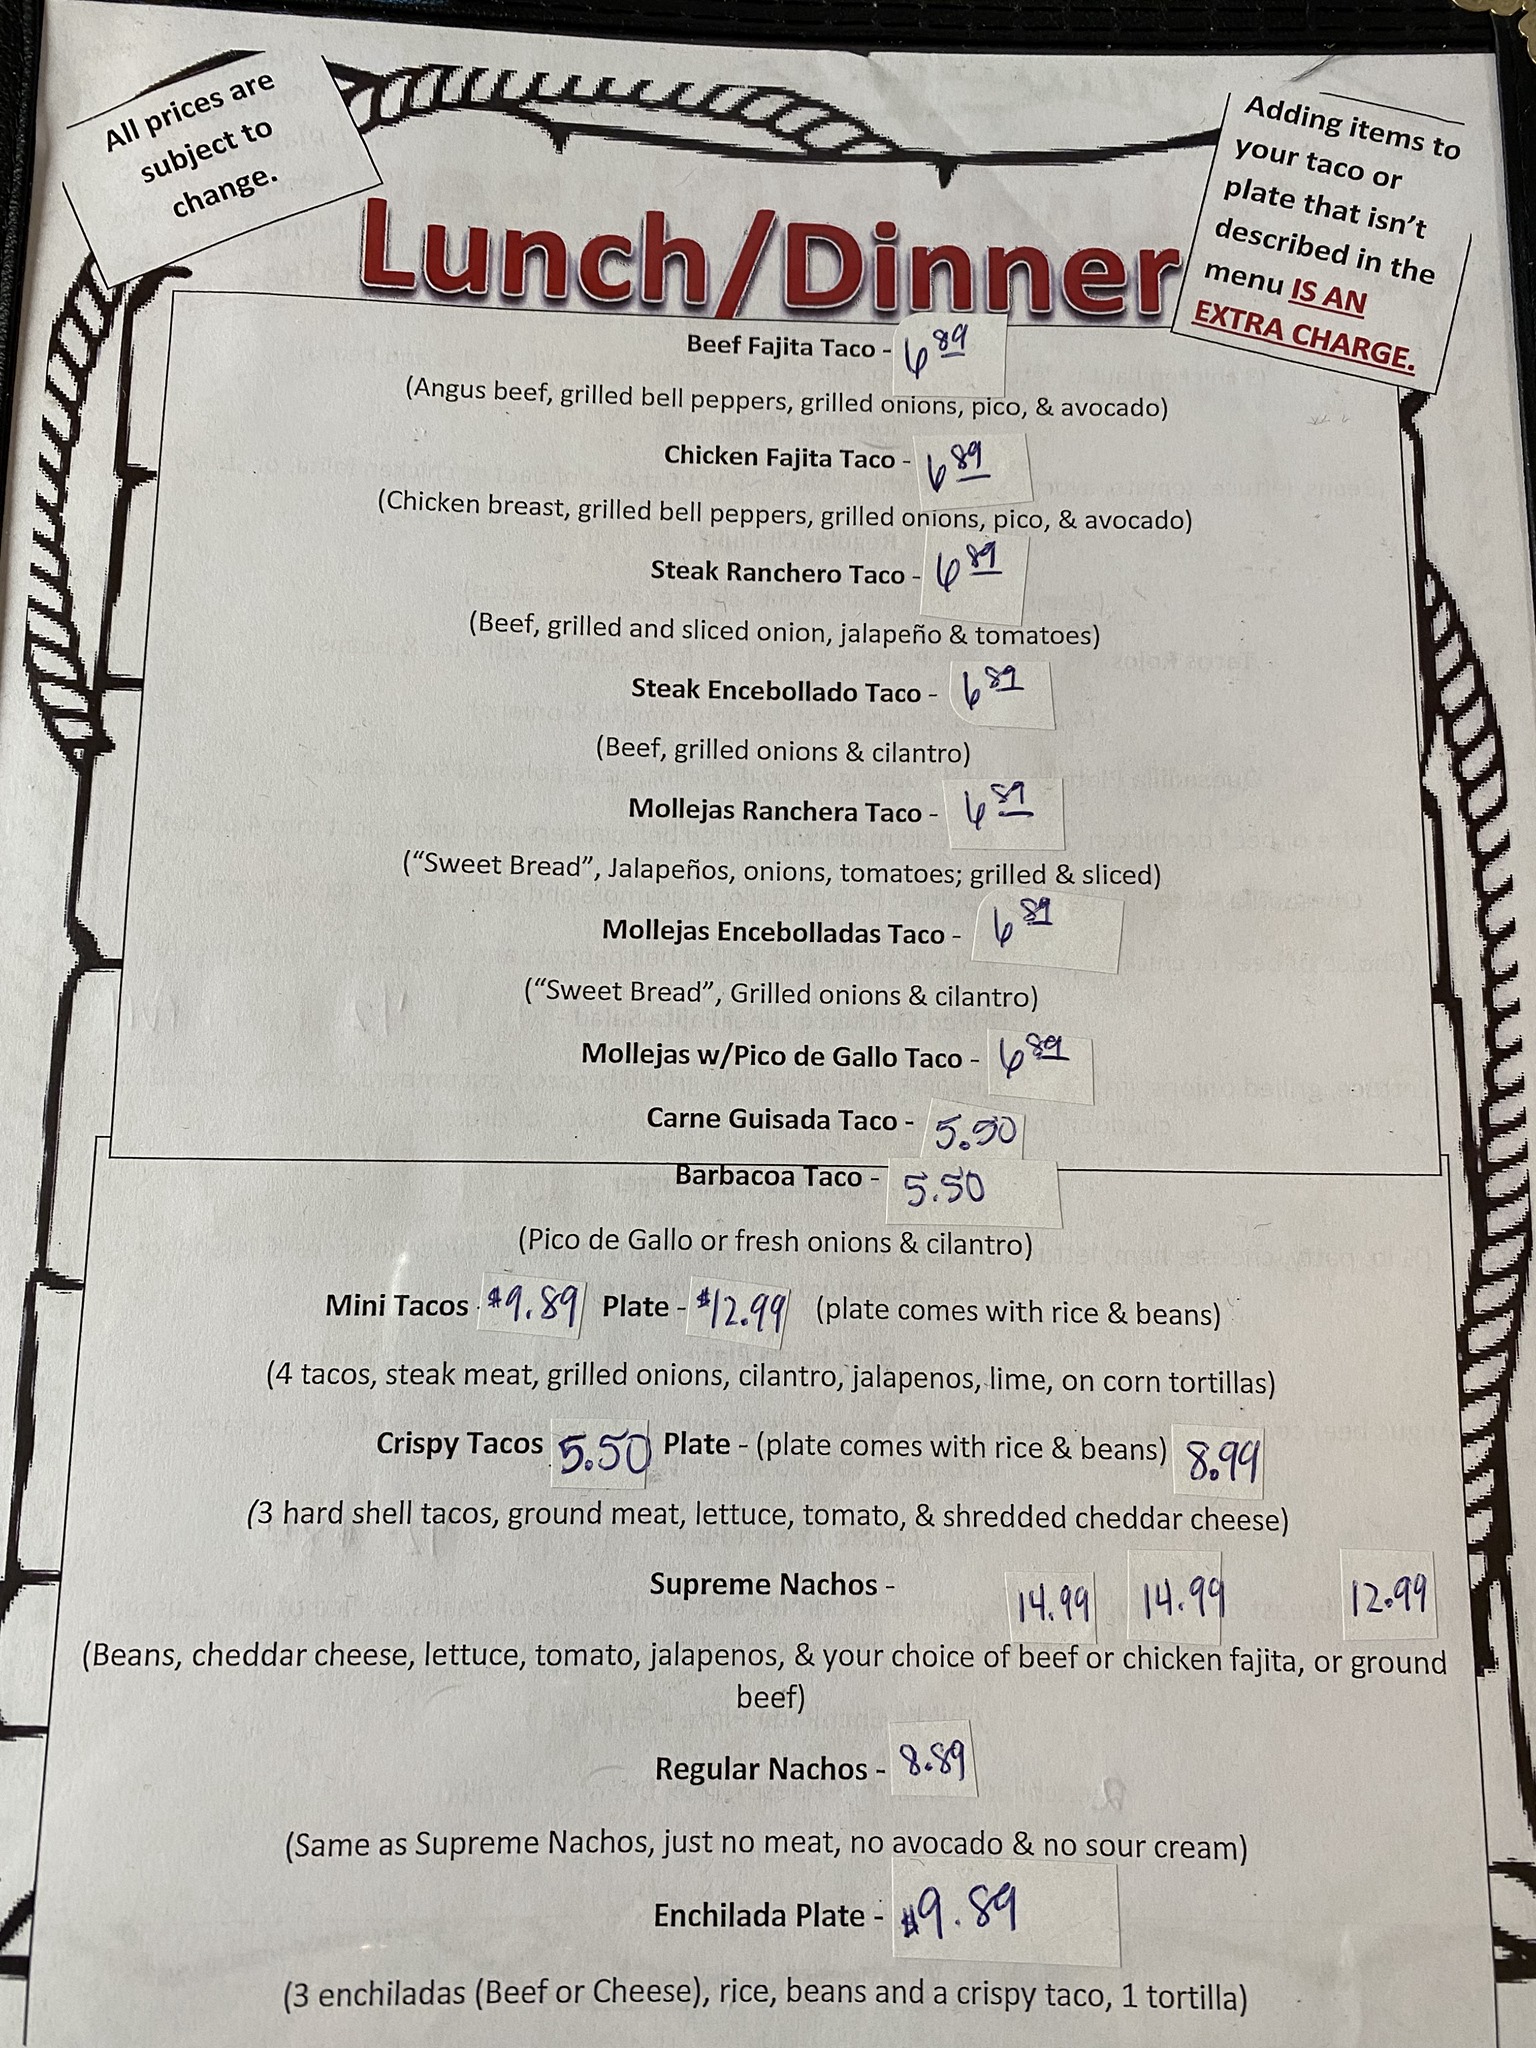 All prices are
subject to
change.
Adding items to
your taco or
plate that isn't
described in the
menu IS AN
EXTRA CHARGE.
Lunch/Dinner
Beef Fajita Taco - 6 89
(Angus beef, grilled bell peppers, grilled onions, pico, & avocado)
Chicken Fajita Taco - 6 89
(Chicken breast, grilled bell peppers, grilled onions, pico, & avocado)
Steak Ranchero Taco - 6 89
(Beef, grilled and sliced onion, jalapeño & tomatoes)
Steak Encebollado Taco - 6 89
(Beef, grilled onions & cilantro)
Mollejas Ranchera Taco - 6 89
("Sweet Bread", Jalapeños, onions, tomatoes; grilled & sliced)
Mollejas Encebolladas Taco - 6 89
("Sweet Bread", Grilled onions & cilantro)
Mollejas w/Pico de Gallo Taco - 6 89
Carne Guisada Taco - 5.50
Barbacoa Taco - 5.50
(Pico de Gallo or fresh onions & cilantro)
Mini Tacos $9.89 Plate - $12.99 (plate comes with rice & beans)
(4 tacos, steak meat, grilled onions, cilantro, jalapenos, lime, on corn tortillas)
Crispy Tacos 5.50 Plate - (plate comes with rice & beans) 8.99
(3 hard shell tacos, ground meat, lettuce, tomato, & shredded cheddar cheese)
Supreme Nachos - 14.99 14.99 12.99
(Beans, cheddar cheese, lettuce, tomato, jalapenos, & your choice of beef or chicken fajita, or ground
beef)
Regular Nachos - 8.89
(Same as Supreme Nachos, just no meat, no avocado & no sour cream)
Enchilada Plate - $9.89
(3 enchiladas (Beef or Cheese), rice, beans and a crispy taco, 1 tortilla)